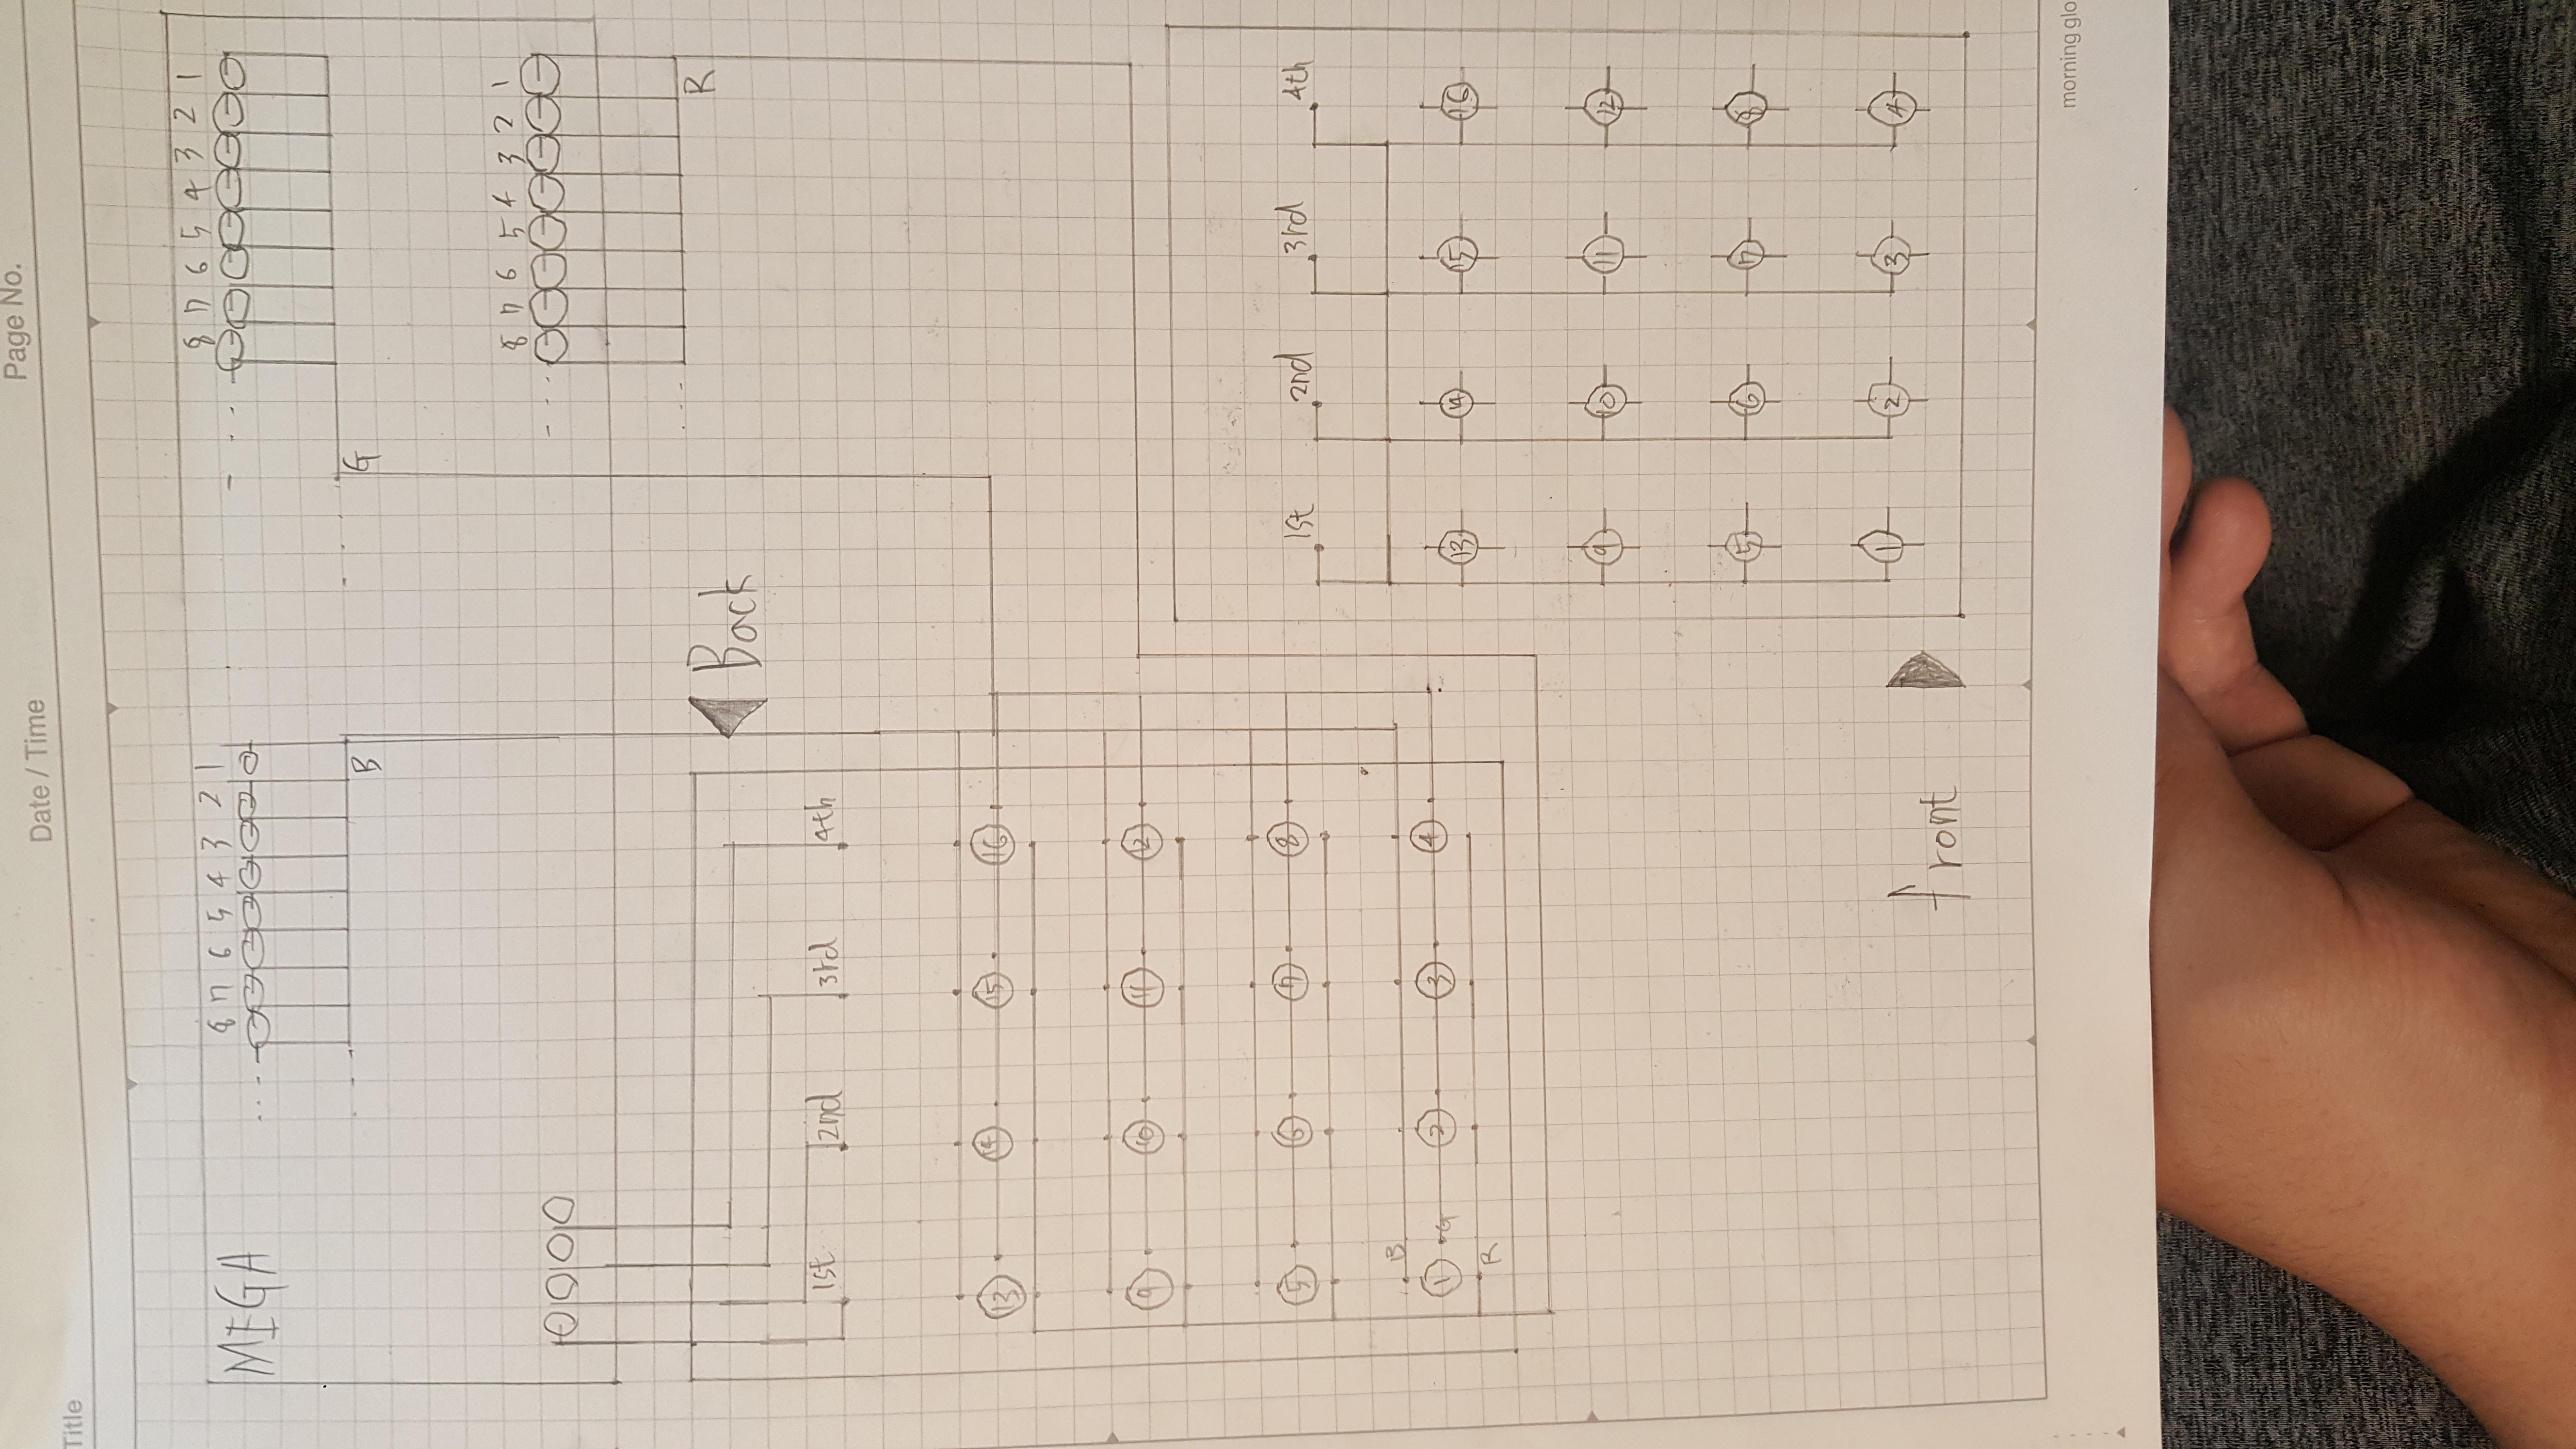 Page No.
Date / Time
Title
8 7 6 5 4 3 2 1
MEGA
8 7 6 5 4 3 2 1
B
G
8 7 6 5 4 3 2 1
R
Back
1st 2nd 3rd 4th
13 14 15 16
9 10 11 12
5 6 7 8
B
1 G 2 3 4
R
1st 2nd 3rd 4th
13 14 15 16
9 10 11 12
5 6 7 8
1 2 3 4
front
morning glo